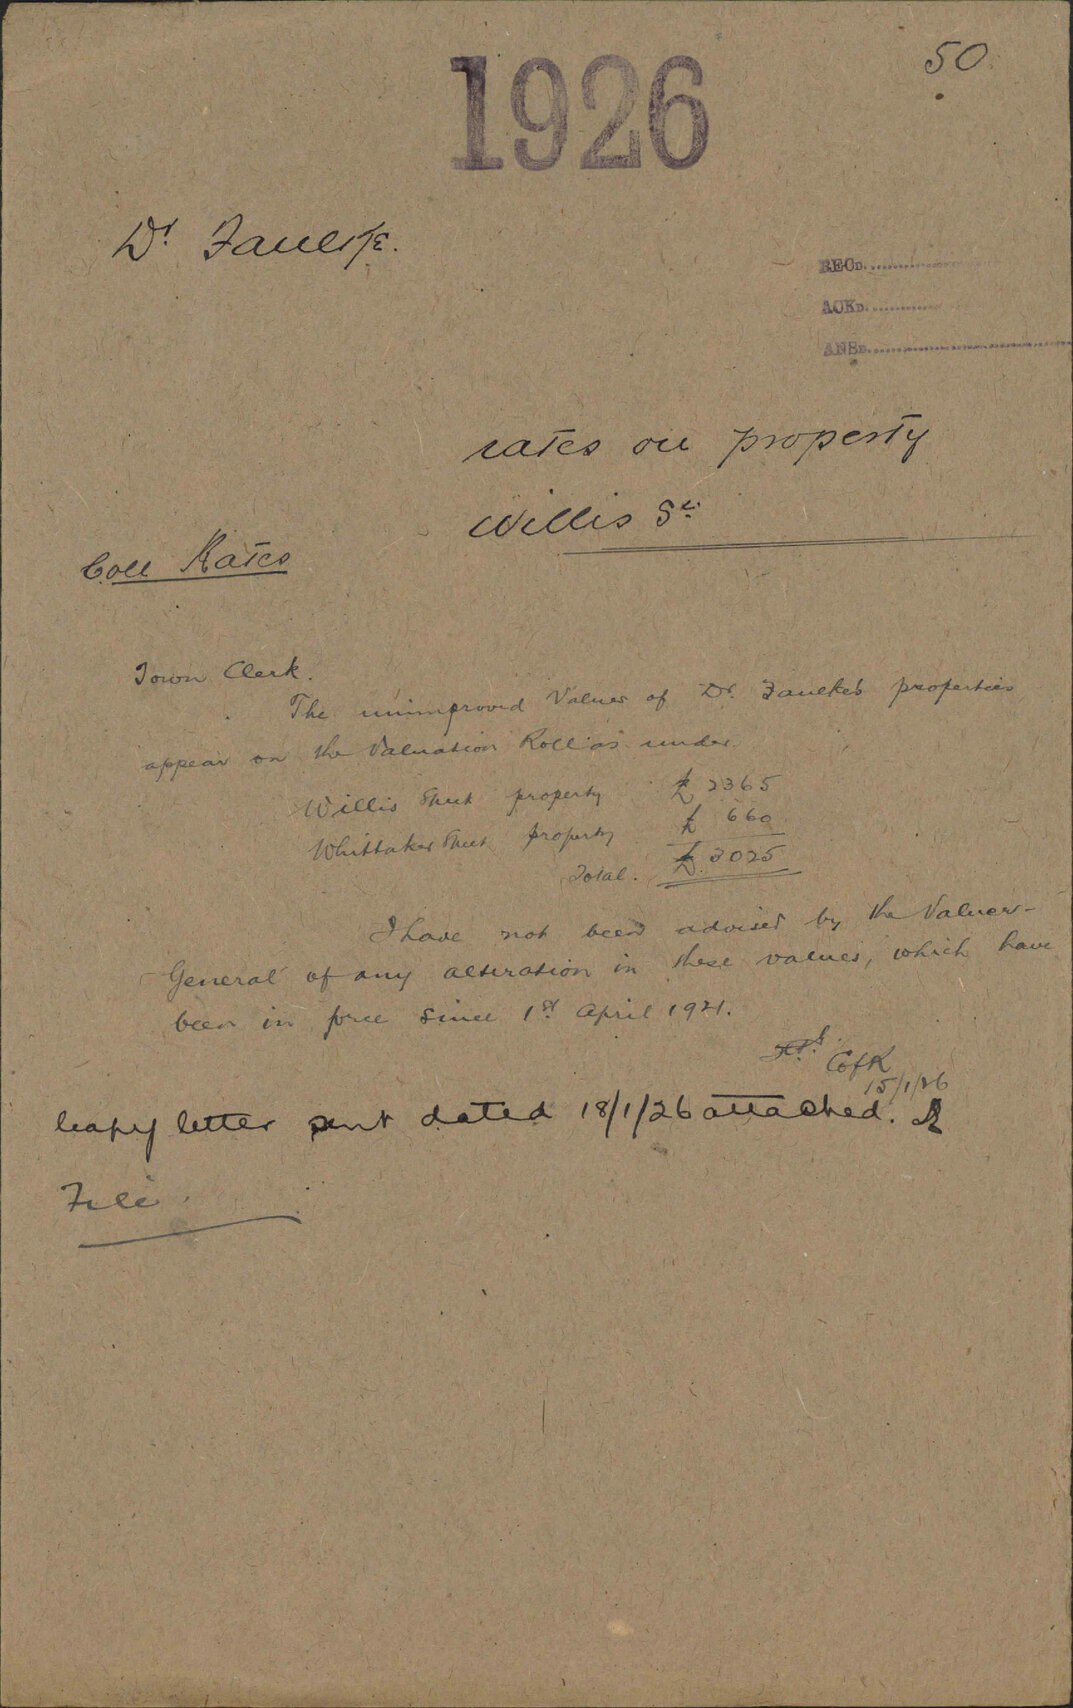 50
1926
Dr. Faulke.
RECD.
ACKD.
ANSD.
rates on property
Willis St.
Coll Rates
Town Clerk.
The unimproved Values of Dr. Faulke's properties
appear on the Valuation Roll as under.
Willis Street property £ 2365
Whittaker Street property £ 660
Total. £ 3025
I have not been advised by the Valuer-
General of any alteration in these values, which have
been in force since 1st April 1921.
CofR
15/1/26
Copy letter sent dated 18/1/26 attached.
File